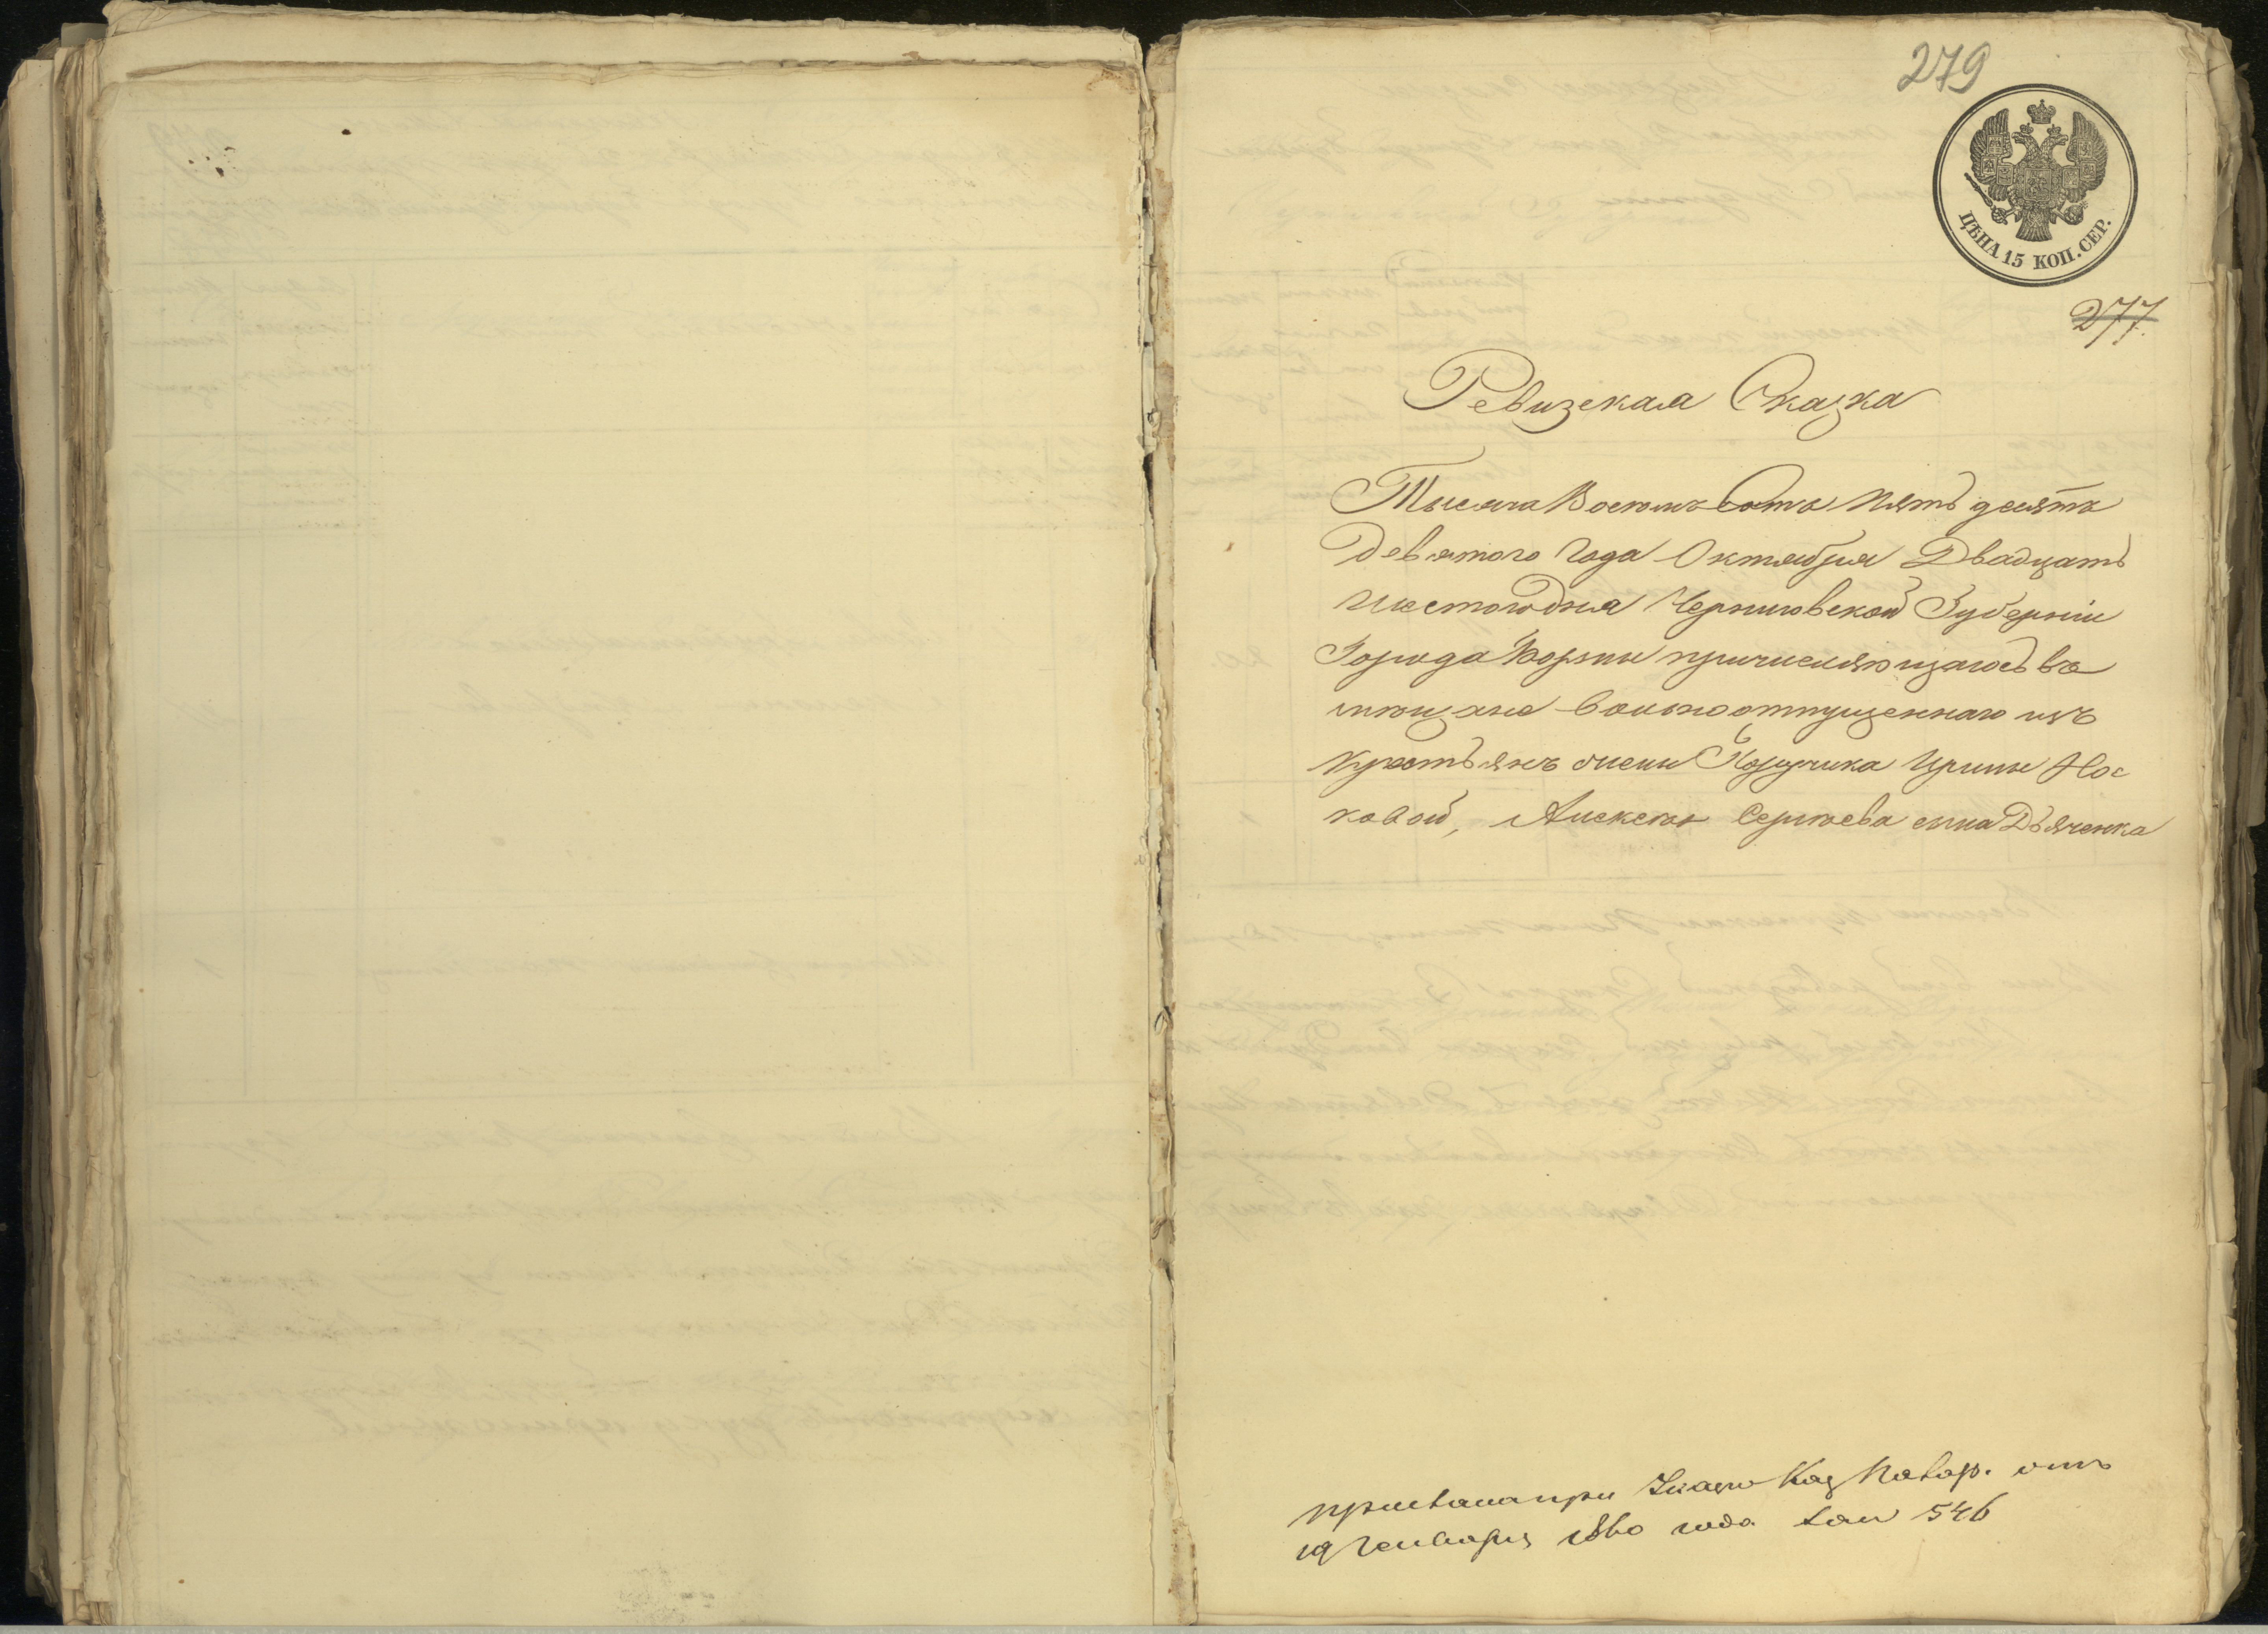 279
ЦѢНА 15 КОП. СЕР.
277
Ревизская Сказка
Тысяча Восемь Сотъ пять десятъ
Девятого Года Октября Двадцать
шестого дня Черниговской Губерніи
Города Борзны причисляющагось въ
мѣщане вольноотпущеннаго изъ
крестьянъ жены Поручика Ирины Нос
ковой, Алексѣя Сергѣева сына Дьяченка
прислана при Указѣ Каз. Палар. отъ
19 Генваря 1860 года за № 546